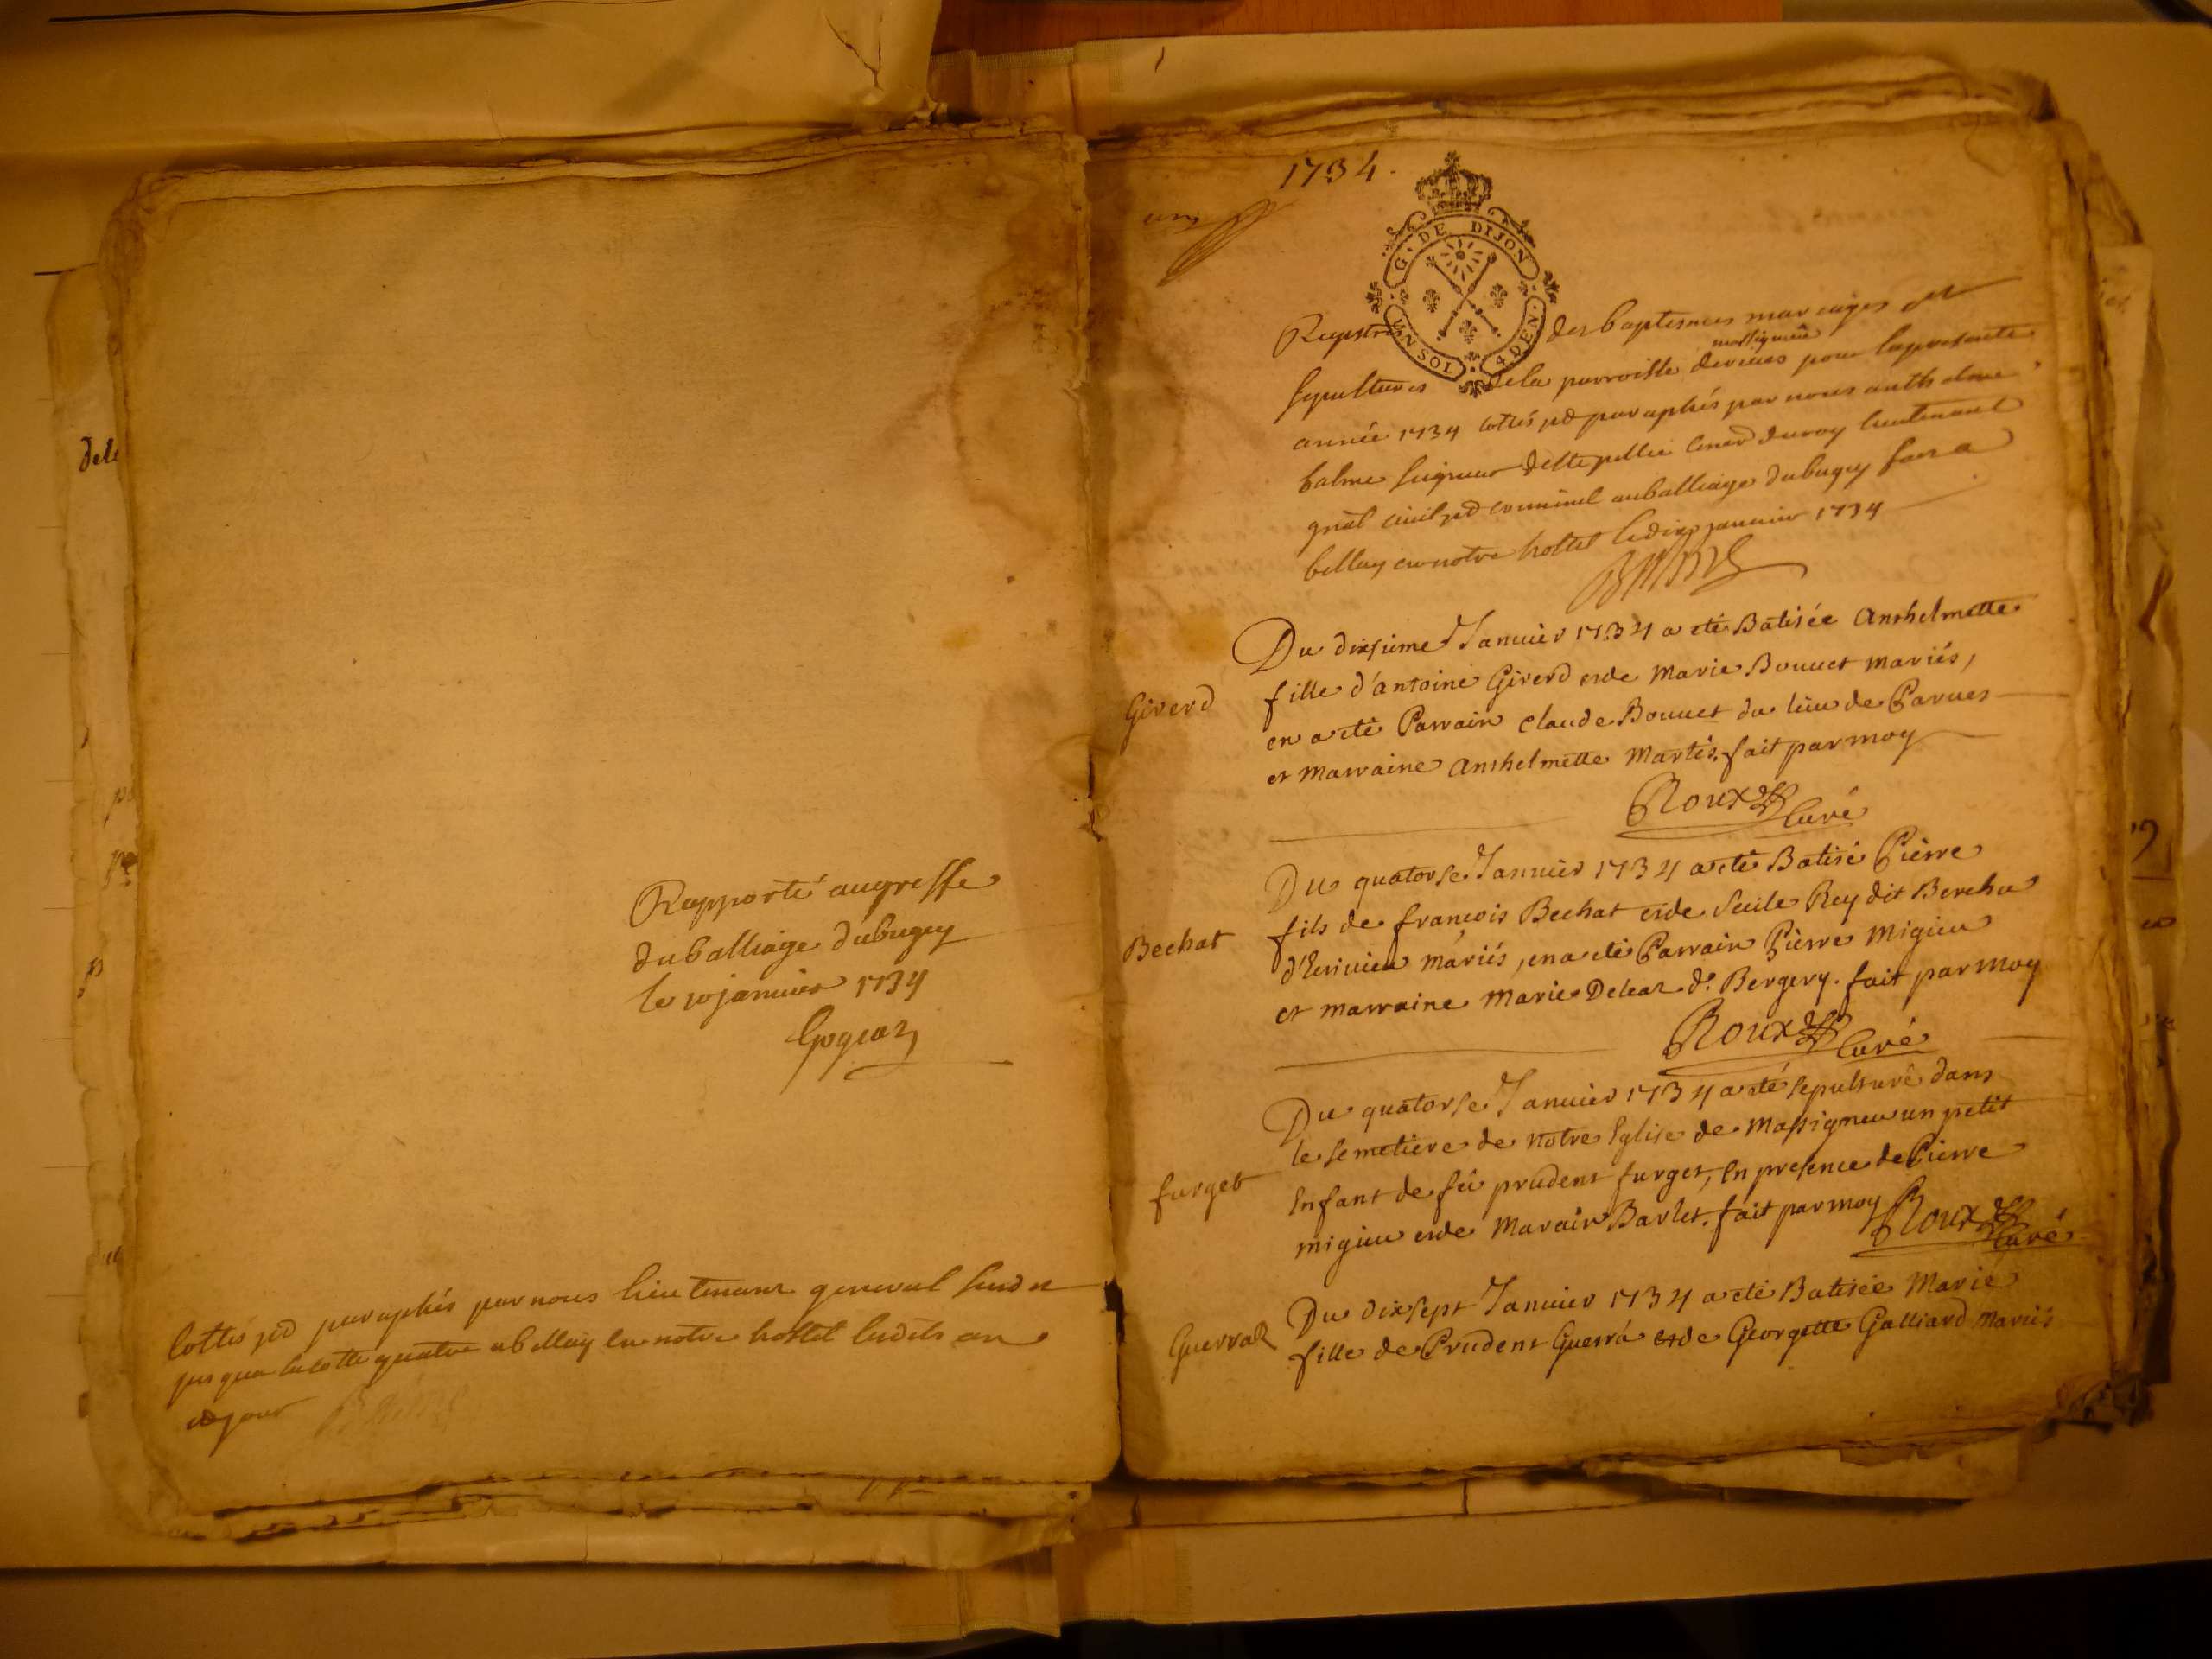 Rapporté au greffe
du balliage du bugey
le 10 janvier 1734
Cottés et paraphés par nous lieutenant general susd et
jusqua la cotte quatre a bellay en notre hottel lesdits an
et jour
1734.
G. DE DIJON
UN SOL 4 DEN.
Registre des baptesmes mariages et
massigneu
sepultures de la parroisse de pour la presente
année 1734 cottés et paraphés par nous anthelme
balme seigneur de Ste pellie conser du roy lieutenant
gnal civil et criminel au balliage du bugey fait a
bellay en notre hottel le dix janvier 1734
Balme
Du dixsieme Janvier 1734 a eté Batisée Anthelmette
Girerd
fille d'antoine Girerd et de Marie Bouuet mariés,
en a eté Parrain Claude Bouuet du lieu de Parues
et marraine Anthelmette Martis. fait par moy
Roux Curé
Du quatorse Janvier 1734 a eté Batisé Pierre
Bechat
fils de francois Bechat et de Seuile Rey dit Bercha
mariés, en a eté Parrain Pierre Migieu
et marraine Marie Deleaz de Bergery. fait par moy
Roux Curé
Du quatorse Janvier 1734 a eté sepulturé dans
le semetiere de notre Eglise de Massigneu un petit
furget
Enfant de feu prudent furget, En presence de Pierre
migieu et de Marain Barlet. fait par moy Roux
Curé
Du dixsept Janvier 1734 a eté Batisée Marie
Guerraz
fille de Prudent Guerrá et de Georgette Galliard mariés